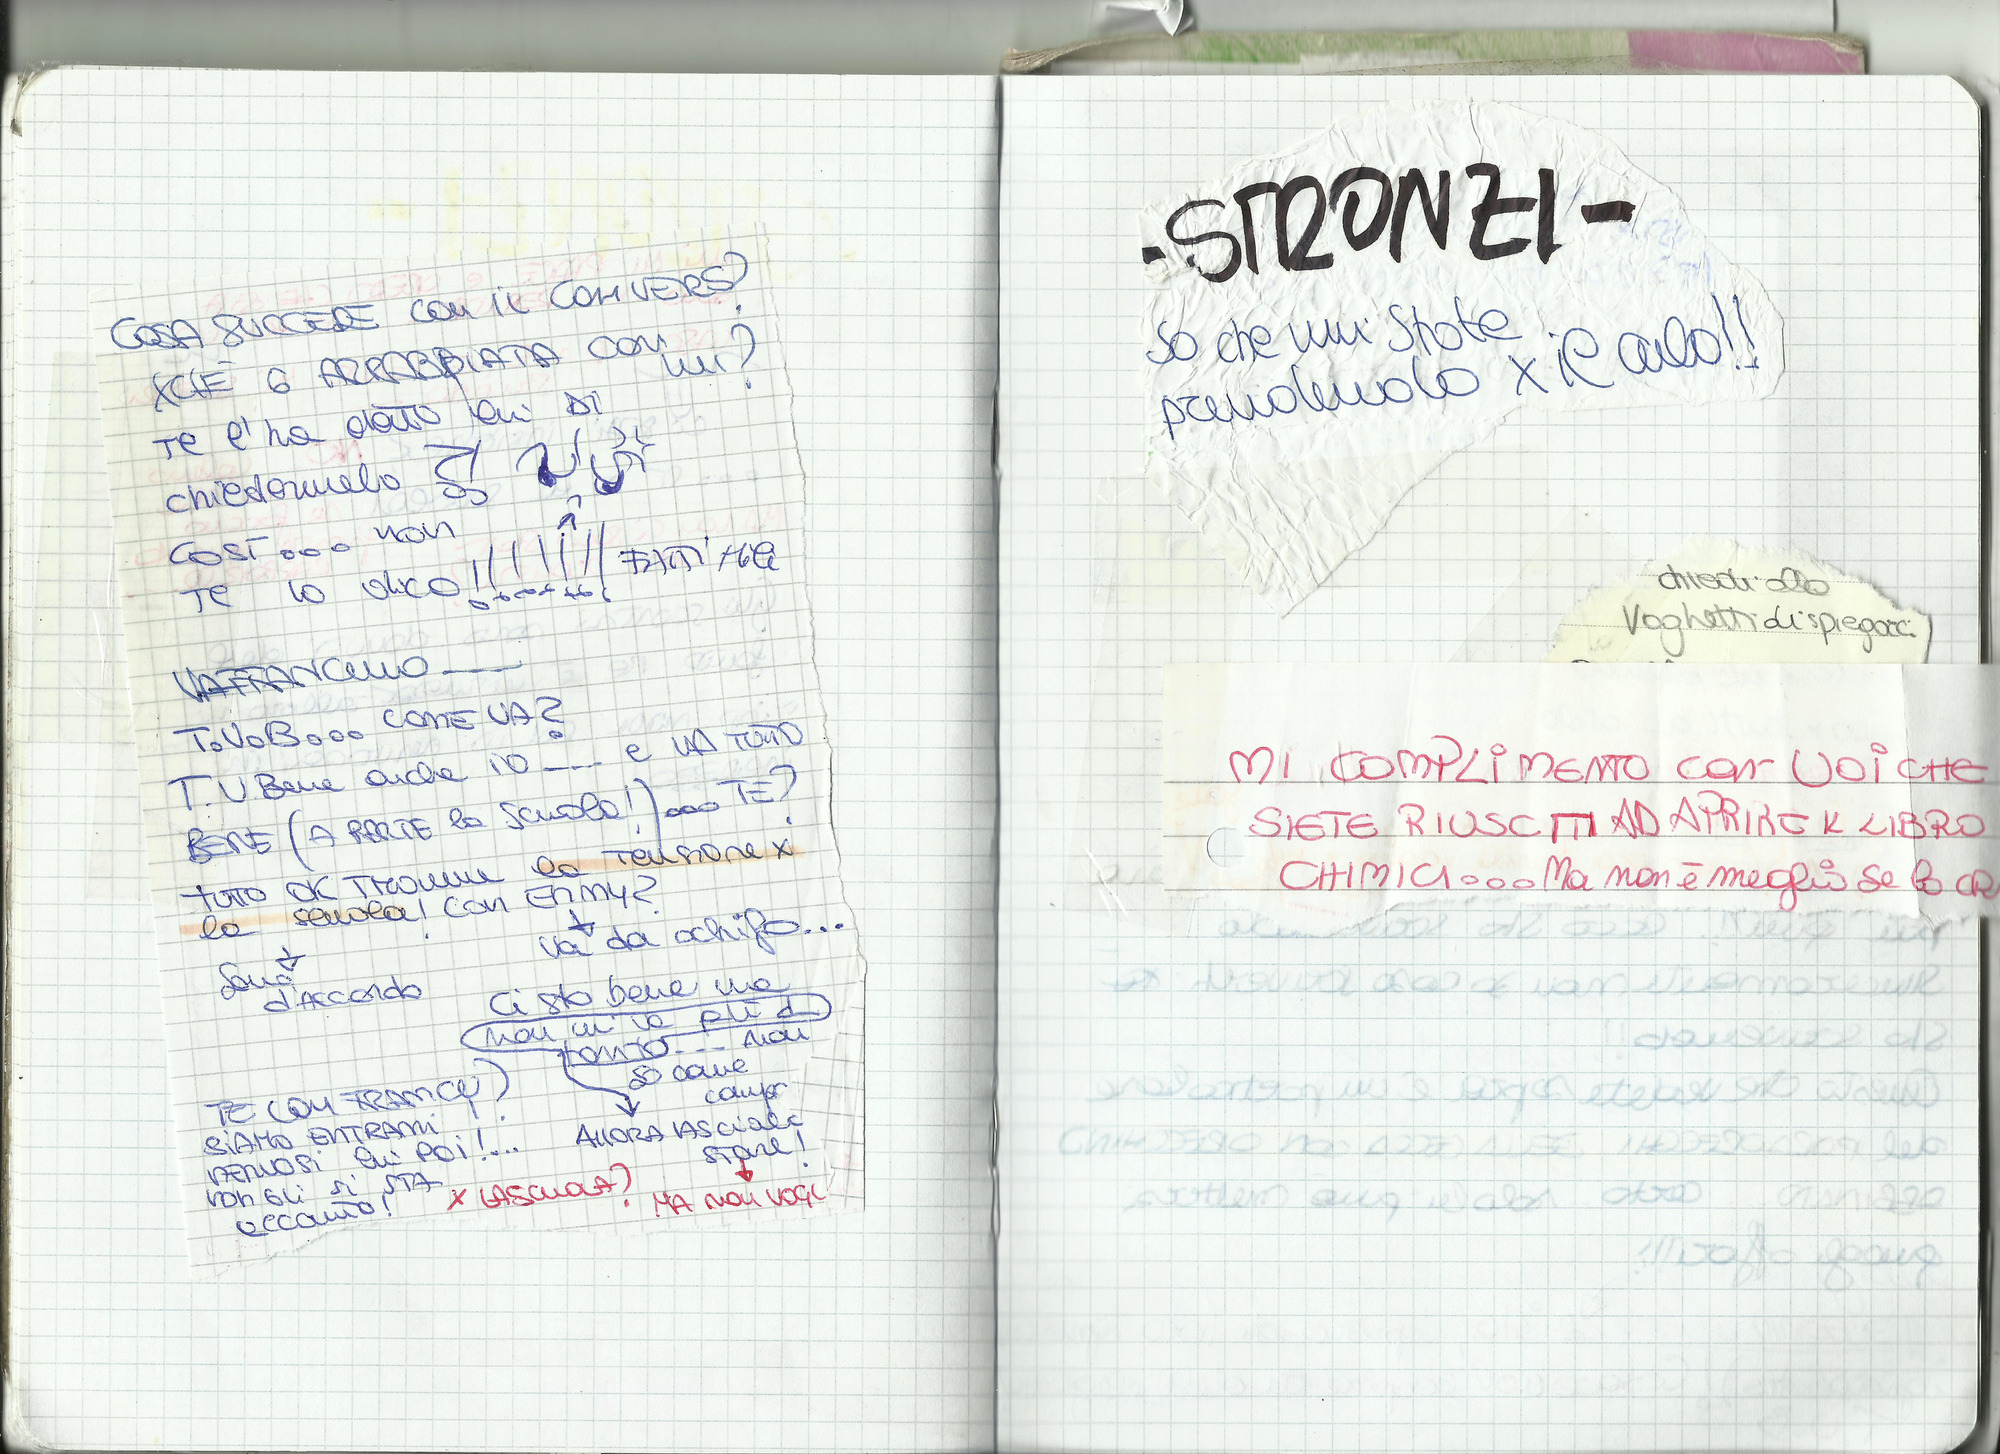 COSA SUCCEDE CON IL CONVERS?
XCHÈ 6 ARRABBIATA CON
MI?
TE l'ha dato lui DI
chiedermelo
COSÌ... non
TE lo dico!!!!!!! FATTI
VAFFANCULO ___
T.V.B... COME VA?
T.V Bene anche io ___ e VA TUTTO
BENE (A PARTE la scuola!)... TE?
tutto OK tranne la tensione x
la scuola! CON ENMY?
va da schifo...
Sono
d'Accordo
Ci sto bene ma
non mi va più di
tanto... non
so come
TE CON FRANCY?
SIAMO ENTRAMI
NERVOSI
ALLORA lascialo
stare!
non gli si STA
accanto!
x LA SCUOLA?
MA NON VOGL
-STRONZI-
So che mi state
prendendo x il culo!!
chiedi alla
Voghetti di spiegarci
MI COMPLIMENTO con VOI CHE
SIETE RIUSCITI AD APRIRE IL LIBRO
CHIMICI... Ma non è meglio se lo